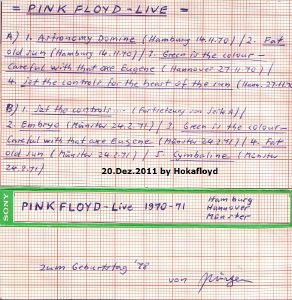 = PINK FLOYD - LIVE =
A) 1. Astronomy Domine (Hamburg 14.11.70) / 2. Fat
old sun (Hamburg 14.11.70) / 3. Green is the colour -
Careful with that axe Eugene (Hannover 27.11.70) /
4. Set the controls for the heart of the sun (Hann. 27.11.70)
B) 1. Set the controls ... (Fortsetzung von Seite A) /
2. Embryo (Münster 24.2.71) / 3. Green is the colour -
Careful with that axe Eugene (Münster 24.2.71) / 4. Fat
old sun (Münster 24.2.71) / 5. Cymbaline (Münster
24.2.71)
20.Dez.2011 by Hokafloyd
SONY
PINK FLOYD - Live 1970-71
Hamburg
Hannover
Münster
zum Geburtstag '78
von Jürgen